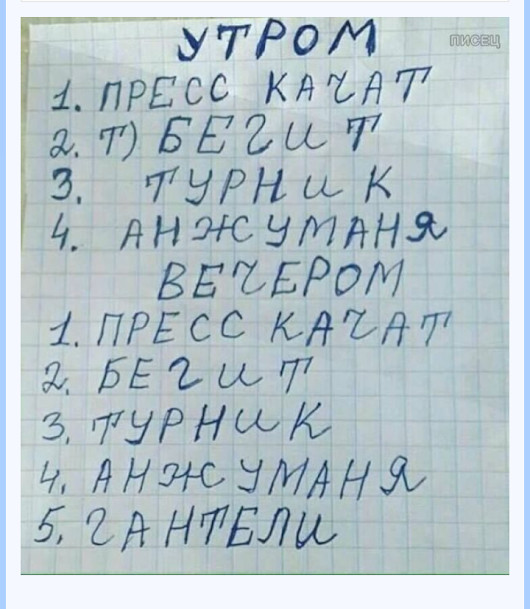 УТРОМ
писец
1. ПРЕСС КАЧАТ
2. Т) БЕГИТ
3. ТУРНИК
4. АНЖУМАНЯ
ВЕЧЕРОМ
1. ПРЕСС КАЧАТ
2. БЕГИТ
3. ТУРНИК
4. АНЖУМАНЯ
5. ГАНТЕЛИ